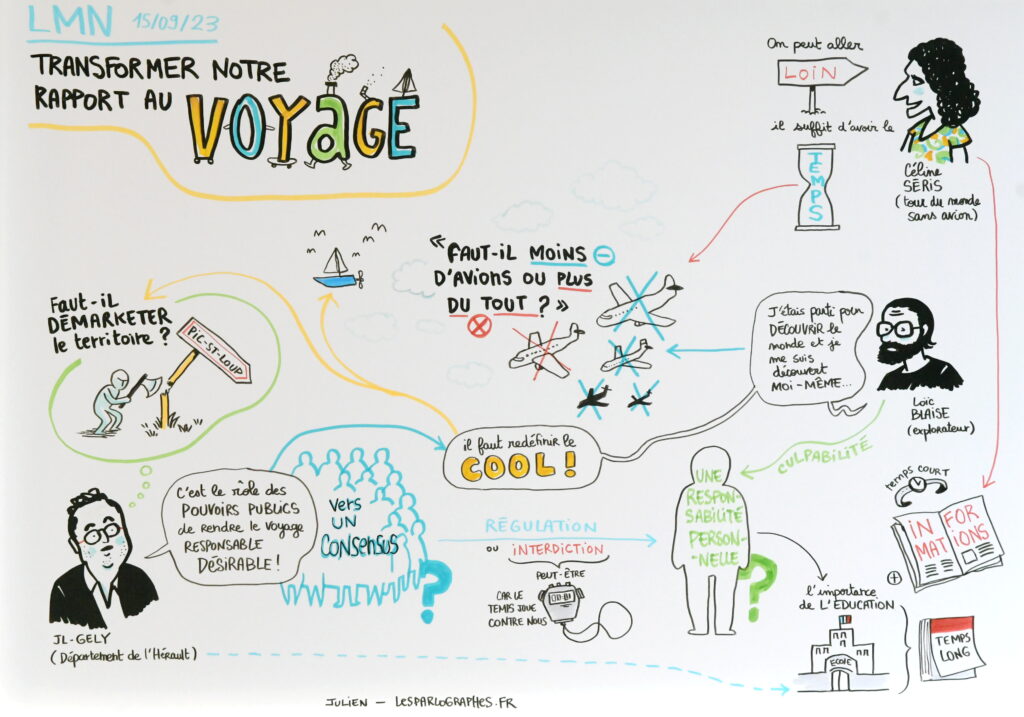 LMN 15/09/23
TRANSFORMER NOTRE
RAPPORT AU
VOYAGE
On peut aller
LOIN
il suffit d'avoir le
TEMPS
Céline
SÉRIS
(tour du monde
sans avion)
« FAUT-IL MOINS
D'AVIONS OU PLUS
DU TOUT ? »
Faut-il
DÉMARKETER
le territoire ?
PIC-ST-LOUP
J'étais parti pour
DÉCOUVRIR le
monde et je
me suis
découvert
MOI-MÊME...
Loïc
BLAISE
(explorateur)
il faut redéfinir le
COOL !
C'est le rôle des
POUVOIRS PUBLICS
de rendre le voyage
RESPONSABLE
DÉSIRABLE !
JL-GELY
(Département de l'Hérault)
vers
UN
CONSENSUS
?
RÉGULATION
OU INTERDICTION
PEUT-ÊTRE
CAR LE
TEMPS JOUE
CONTRE NOUS
CULPABILITÉ
UNE
RESPON-
SABILITÉ
PERSON-
NELLE
?
TEMPS COURT
INFOR
MATIONS
l'importance
de L'ÉDUCATION
ECOLE
TEMPS
LONG
JULIEN — LESPARLOGRAPHES.FR